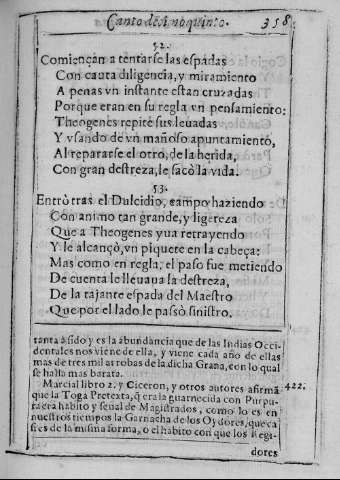 Canto decimoquinto. 358
52.
Comiençan a tentarse las espadas
Con cauta diligencia, y miramiento
A penas vn instante estan cruzadas
Porque eran en su regla vn pensamiento:
Theogenes repite sus leuadas
Y vsando de vn mañoso apuntamiento,
Al repararse el otro, de la herida,
Con gran destreza, le sacò la vida.
53.
Entrò tras el Dulcidio, campo haziendo
Con animo tan grande, y ligereza
Que a Theogenes yua retrayendo
Y le alcançò, vn piquete en la cabeça:
Mas como en regla, el paso fue metiendo
De cuenta le lleuaua la destreza,
De la tajante espada del Maestro
Que por el lado le passò sinistro.
tanta à sido y es la abundancia que de las Indias Occi-
dentales nos viene de ella, y viene cada año de ellas
mas de tres mil arrobas de la dicha Grana, con lo qual
se halla mas barata.
Marcial libro 2. y Ciceron, y otros autores afirmã 422.
que la Toga Pretexta, q̃ era la guarnecida con Purpu-
ra era habito y señal de Magistrados, como lo es en
nuestros tiempos la Garnacha de los Oydores, que ca
si es de la misma forma, o el habito con que los Regi-
dores